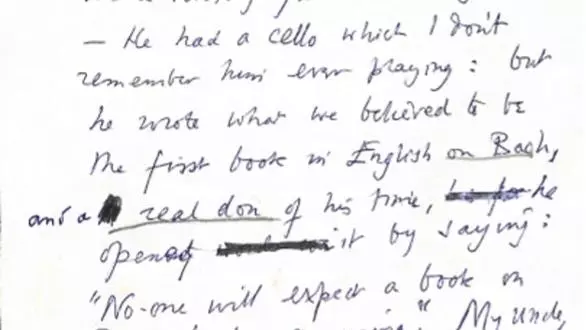 — He had a cello which I don't
remember him ever playing: but
he wrote what we believed to be
the first book in English on Bach,
and a real don of his time, he
opened it by saying:
"No-one will expect a book on
" My uncle,